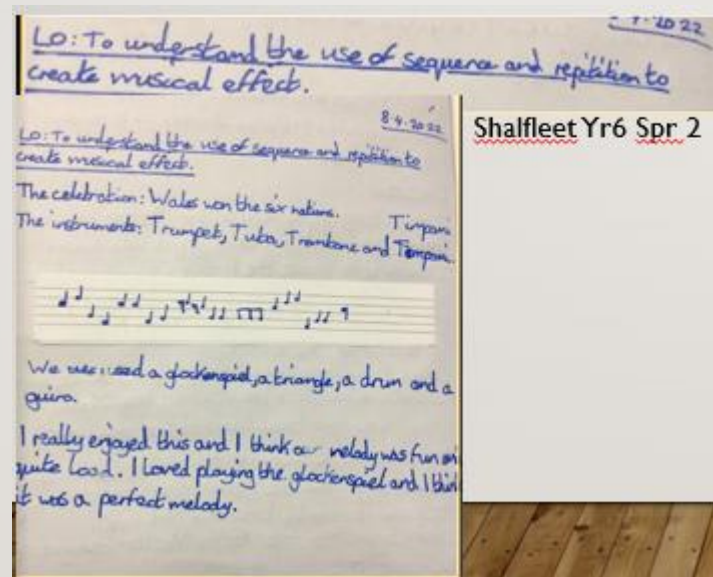 8.4.2022
LO: To understand the use of sequence and repitition to
create musical effect.
8.4.2022
LO: To understand the use of sequence and repitition to
create musical effect.
Shalfleet Yr6 Spr 2
The celebration: Wales won the six nations.
Timpani
The instruments: Trumpet, Tuba, Trombone and Timpani.
We used a glockenspiel, a triangle, a drum and a
guiro.
I really enjoyed this and I think our melody was fun and
quite loud. I loved playing the glockenspiel and I think
it was a perfect melody.